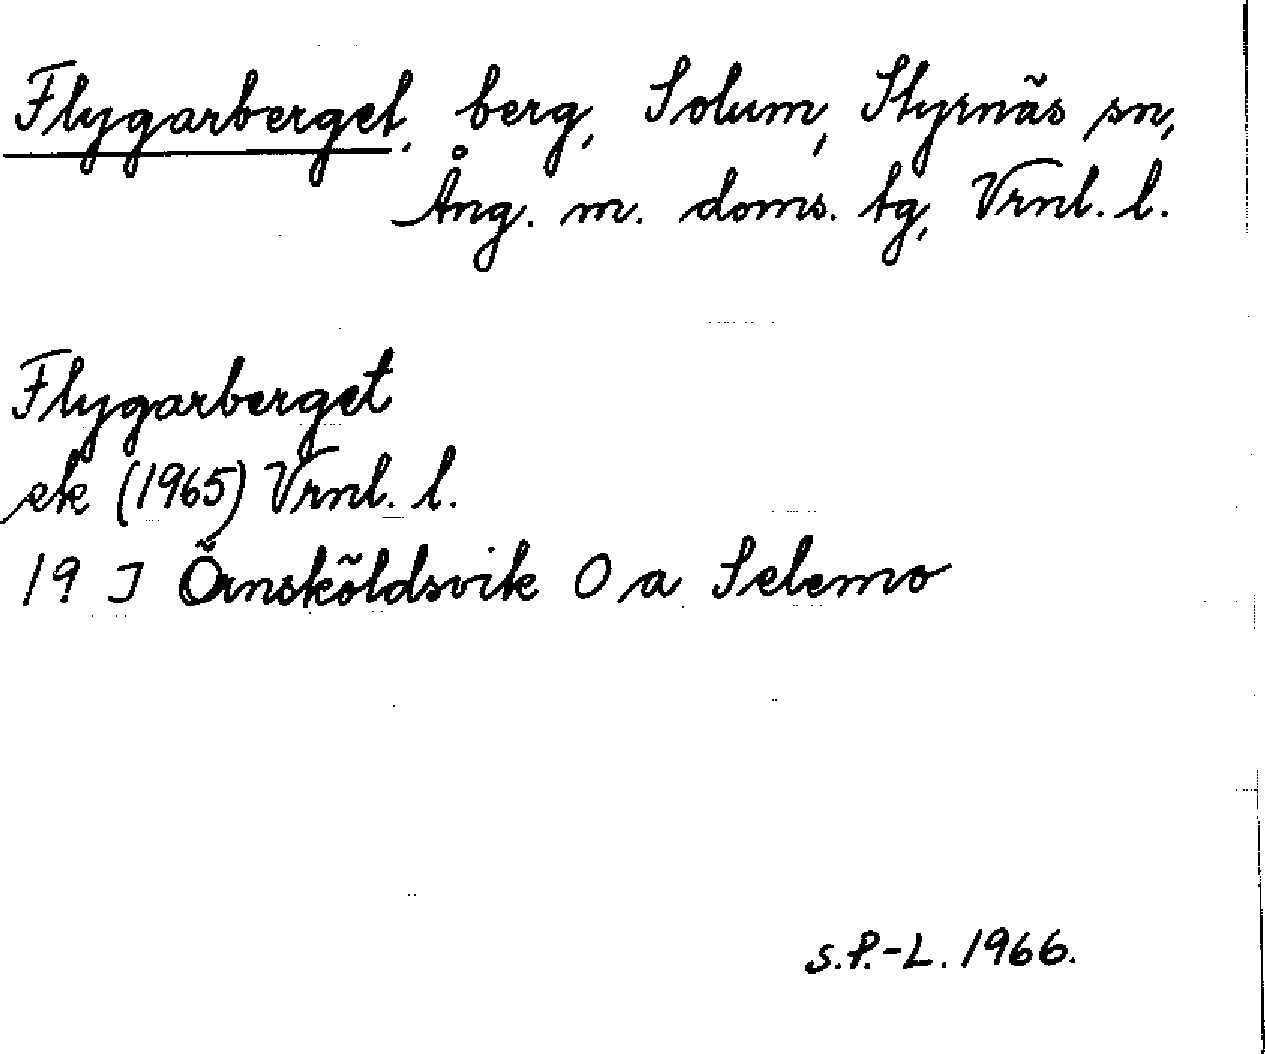 Flygarberget, berg, Solum, Styrnäs sn,
Ång. m. doms. tg, Vrnl. l.
Flygarberget
ek (1965) Vrnl. l.
19 J Örnsköldsvik O a Selemo
S.P.-L. 1966.